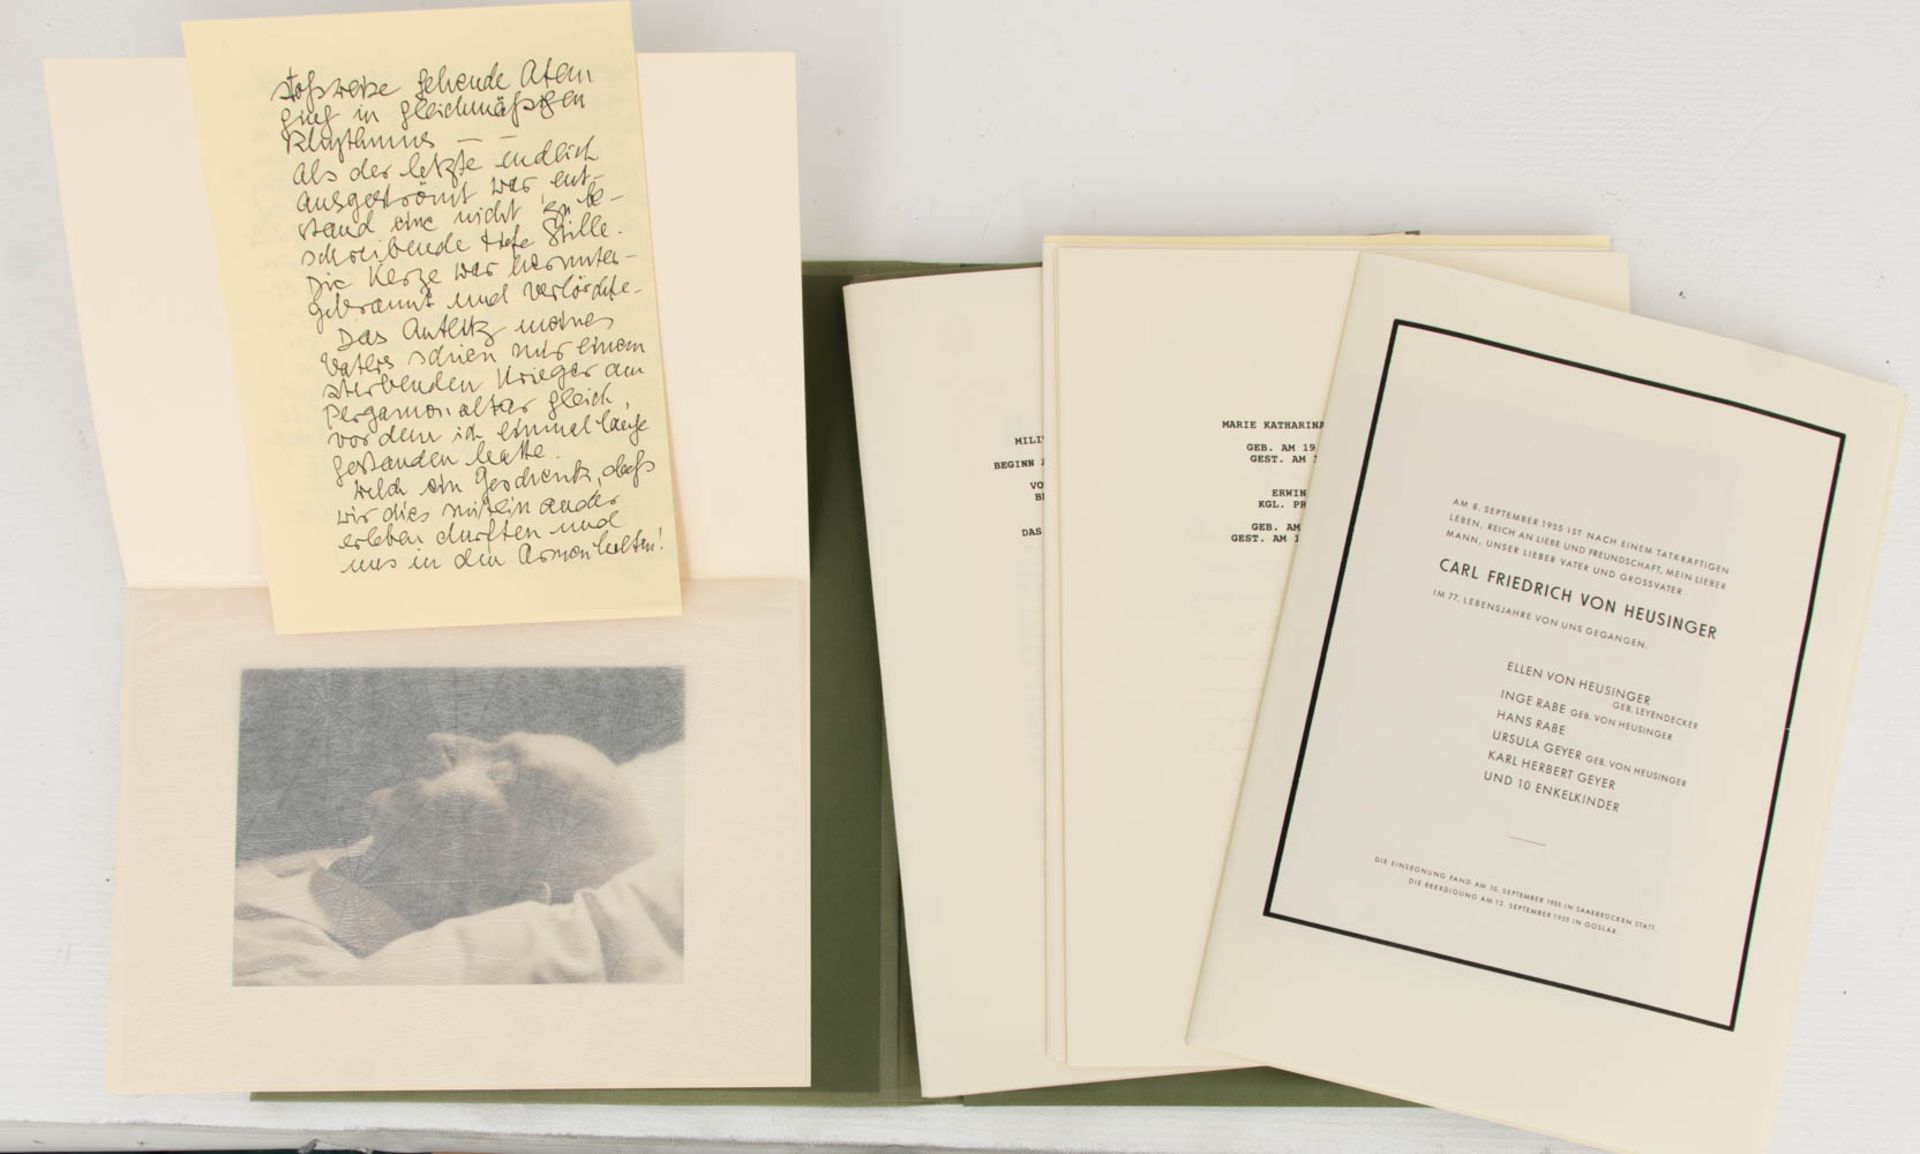 stoßweise gehende Atem
ging in gleichmäßigen
Rhythmus — —
Als der letzte endlich
ausgeströmt war ent-
stand eine nicht zu be-
schreibende tiefe Stille.
Die Kerze war herunter-
gebrannt und verlöschte.
Das Antlitz meines
Vaters schien mir einem
sterbenden Krieger am
Pergamonaltar gleich,
vor dem ich einmal lange
gestanden hatte.
Welch ein Geschenk, daß
wir dies miteinander
erleben durften und
uns in den Armen halten!
MILI
BEGINN
VO
BE
DAS
MARIE KATHARINA
GEB. AM 19
GEST. AM 1
ERWIN
KGL. PR
GEB. AM
GEST. AM 1
AM 8. SEPTEMBER 1955 IST NACH EINEM TATKRAFTIGEN
LEBEN, REICH AN LIEBE UND FREUNDSCHAFT, MEIN LIEBER
MANN, UNSER LIEBER VATER UND GROSSVATER
CARL FRIEDRICH VON HEUSINGER
IM 77. LEBENSJAHRE VON UNS GEGANGEN.
ELLEN VON HEUSINGER
GEB. LEYENDECKER
INGE RABE GEB. VON HEUSINGER
HANS RABE
URSULA GEYER GEB. VON HEUSINGER
KARL HERBERT GEYER
UND 10 ENKELKINDER
DIE EINSEGNUNG FAND AM 10. SEPTEMBER 1955 IN SAARBRÜCKEN STATT.
DIE BEERDIGUNG AM 12. SEPTEMBER 1955 IN GOSLAR.